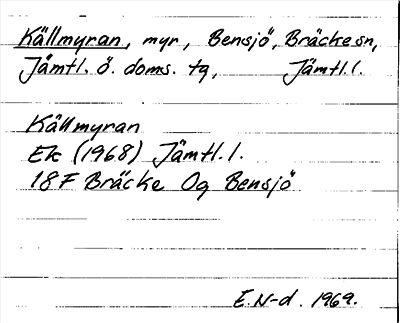 Källmyran, myr, Bensjö, Bräcke sn,
Jämtl. ö. doms. tg, Jämtl. l.
Källmyran
Ek (1968) Jämtl. l.
18F Bräcke Og Bensjö
E. N-d. 1969.